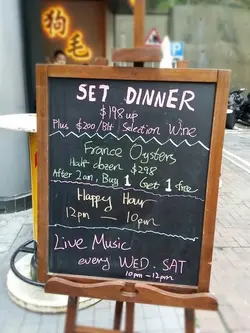 狗
毛
SET DINNER
$198 up
Plus $200/Btl Selection Wine
France Oysters
Half dozen $298
After 2am, Buy 1 Get 1 free
Happy Hour
12pm 10pm
Live Music
every WED. SAT
10pm-12pm